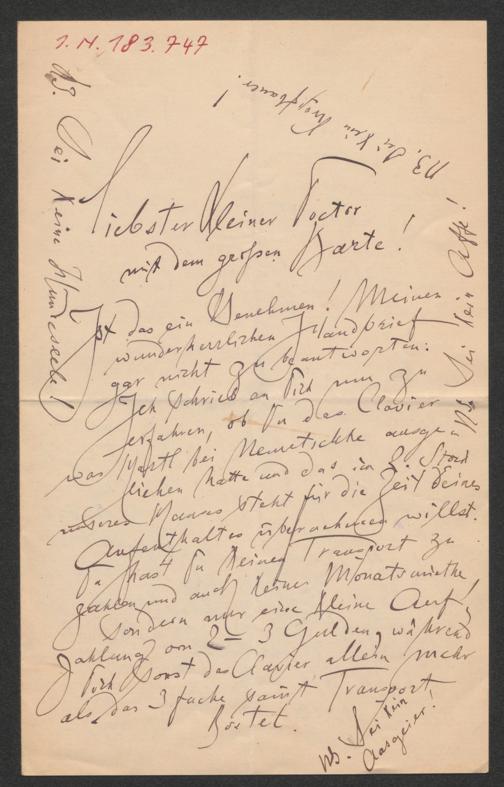 I. N. 183.747
NB. Sei kein Knopfbauer!
NB. Sei keine Hundeseele!
NB. Sei kein Affe!
Liebster kleiner Doctor
mit dem großen Barte!
Ist das ein Benehmen! Meinen
wunderherrlichen Handbrief
gar nicht zu beantworten.
Ich schrieb an Dich um zu
erfahren, ob Du das Clavier
was Hartl bei Nemetschke ausge
liehen hatte und das im 2. Stock
unseres Hauses steht für die Zeit Deines
Aufenthaltes übernehmen willst.
Du hast Du keinen Transport zu
zahlen und auch keine Monatsmiethe
sondern nur eine kleine Auf,
zahlung von 2 – 3 Gulden, während
Dich sonst das Clavier allein mehr
als das 3 fache samt Transport
kostet.
NB. Sei kein
Aasgeier!